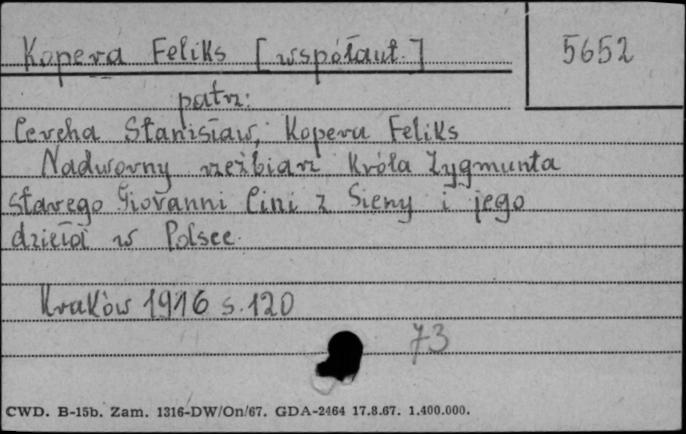 Kopera Feliks [współaut.]
5652
patrz:
Cercha Stanisław, Kopera Feliks
Nadworny rzeźbiarz Króla Zygmunta
Starego Giovanni Cini z Sieny i jego
dzieła w Polsce.
Kraków 1916 s. 120
73
CWD. B-15b. Zam. 1316-DW/On/67. GDA-2464 17.8.67. 1.400.000.